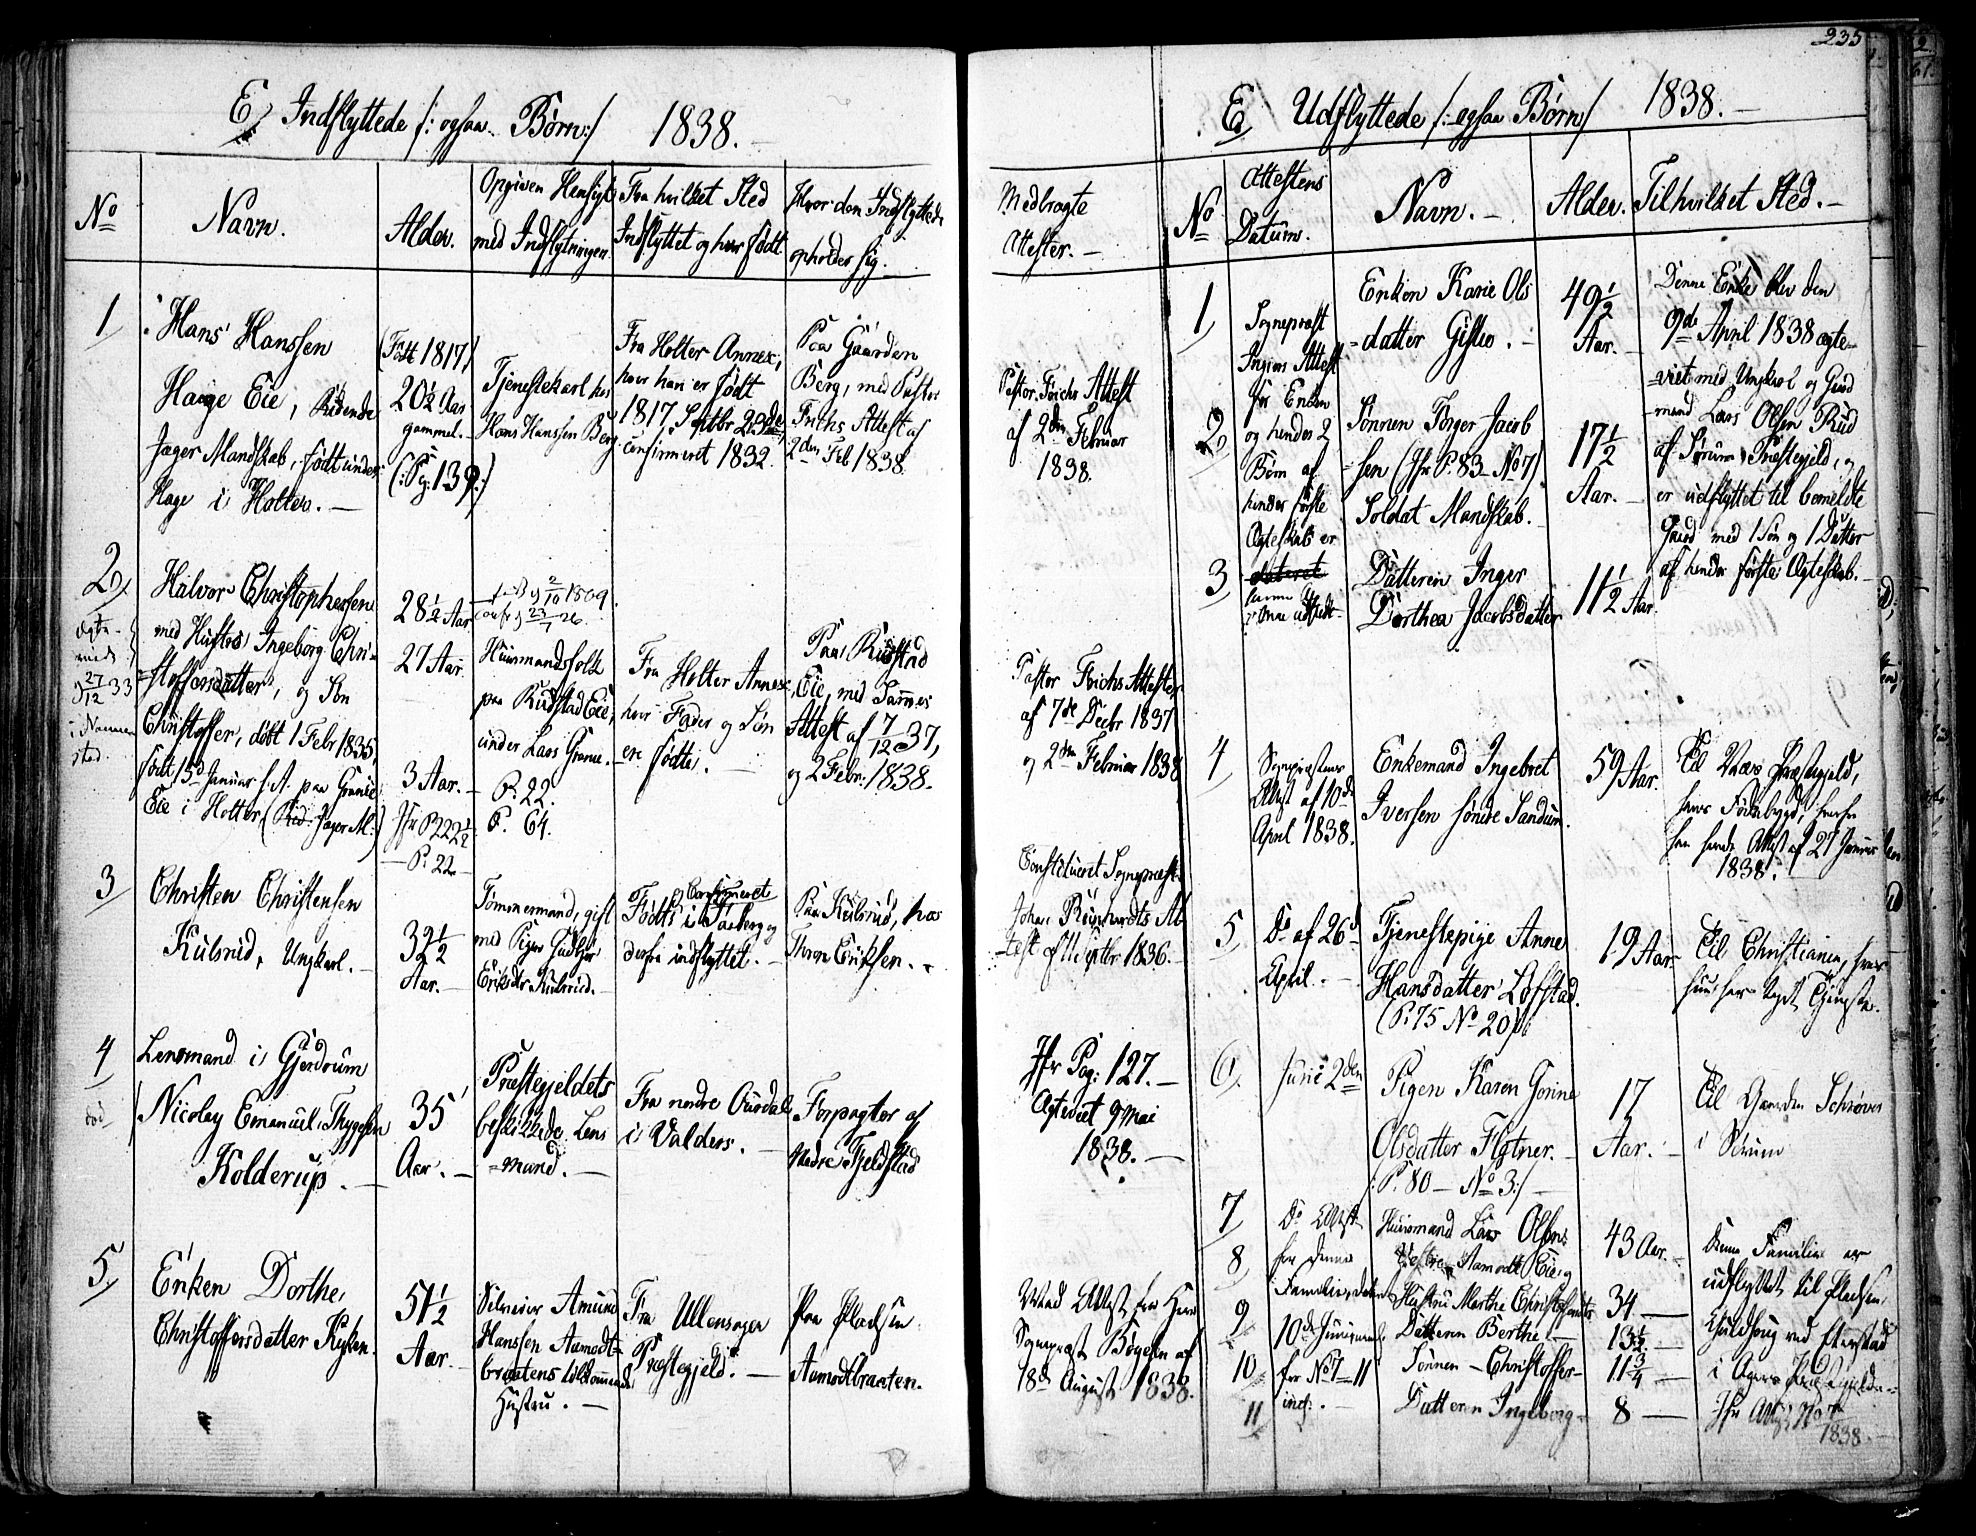 235
E, Indflyttede /: ogsaa Børn:/ 1838.
No
Navn.
Alder.
Opgiven Hensigt
med Indflytningen
Fra hvilket Sted
Indflyttet og hvor født
Hvor den Indflyttede
opholder sig.
Medbragte
Attester.
1
Hans Hanssen
Hage Eie, Ridende
Jæger Mandskab, født under
Hage i Holter.
(Født 1817)
20½ Aar
gammel.
(:Pg: 139:)
Tjenestekarl hos
Hans Hanssen Berg
Fra Holter Annex,
hvor han er født
1817, Septbr 22de,
confirmeret 1832.
Paa Gaarden
Berg, med Pastor
Frichs Attest af
2den Feb 1838.
Pastor Frichs Attest
af 2den Februar
1838.
2
Ægte-
viede
27/12 33
i Nannes
sted.
Halvor Christophersen
med Hustro Ingeborg Chri-
stoffersdatter, og Søn
Christoffer, døbt 1 Febr 1835,
født 15d Januar s.A. paa
Eie i Holter, (Rid. Jæger M.)
28½ Aar
27 Aar.
3 Aar.
Jfr P 222½
P. 22
2/10 1809
23/7 26.
Huusmandsfolk
paa Rudstad Eie,
under Lars
P. 22.
P. 64.
Fra Holter Annex,
hvor Fader og Søn
ere fødte.
Paa Rudstad
Eie, med Sammes
Attest af 7/12 37,
og 2 Febr. 1838.
Pastor Frichs Attester
af 7de Decbr 1837
og 2den Februar 1838
3
Christen Christensen
Kulsrud, Ungkarl.
32½
Aar.
Tømmermand, gift
med Pigen
Eriksdr Kulsrud.
og Confirmeret
Født i Faaberg og
derfra indflyttet.
Paa Kulsrud, hos
Thron Eriksen.
Constitueret Sognepræst
Johan Reinhardts At-
test af 11 Septbr 1836.
4
død
Lensmand i Gjerdrum
Nicolay Emanuel Thygesen
Kolderup.
35
Aar.
Præstegjeldets
beskikkede Lens
=mand.
Fra nordre Aurdal
i Valders.
Forpagter af
Nedre Fjeldstad
Jfr Pag: 127.
Ægteviet 9 Mai
1838.
5
Enken Dorthe
Christoffersdatter Ryken.
51½
Aar.
Selveier Amund
Hanssen Aamodt-
braatens tilkommende
Hustru.
Fra Ullensager
Præstegjeld.
Paa Pladsen
Aamodtbraaten.
Med Attest fra Herr
Sognepræst Børgesen af
18de August 1838.
E, Udflyttede /: ogsaa Børn/ 1838.
No
Attestens
Datum.
Navn.
Alder.
Til hvilket Sted.
1
Sognepræst
Attest
for Enken
og hendes 2
Børn af
hendes første
Ægteskab er
dateret
Enken Karie Ols
=datter Gislo.
49½
Aar.
Denne Enke blev den
9de April 1838 ægte-
=viet med Ungkarl og Gaard
mand Lars Olsen Rud
af Sørum Præstegjeld, og
er udflyttet til bemeldte
Gaard med 1 Søn og 1 Datter
af hendes første Ægteskab.
2
Sønnen Torger Jacob
sen (Jfr P. 83 No 7)
Soldat Mandskab.
17½
Aar.
3
Datteren Inger
Dorthea Jacobsdatter
11½ Aar.
4
Sognepræstens
Attest af 10de
April 1838.
Enkemand Ingebret
Iversen søndre Sandum.
59 Aar.
Til Præstegjeld,
hans Fødebygd, hvorfra
han havde Attest af 27 Januar
1838.
5
Do af 26d
April.
Tjenestepige Anne
Hansdatter Løfstad.
(P. 75 No 20)
19 Aar.
Til Christiania, hvor
hun har taget Tjeneste.
6
Junii 2den
Pigen Karen Jorine
Olsdatter Flatner.
/:P. 80 - No 3:/
17
Aar.
Til Gaarden
i Sørum
7
Do Attest
for denne
Familie, dateret
10de Junii
for No 7-11
incl.
Huusmand Lars Olsen
Aamodt Eie, og
43 Aar.
8
Hustru Marthe Christophersdtr
34
9
Datteren Berthe
13½
10
Sønnen Christoffer
11¾
11
Datteren Ingeborg
8
Denne Familie er
udflyttet til Pladsen
ved Etterstad
i Agers Præstegjeld
Jfr
1838